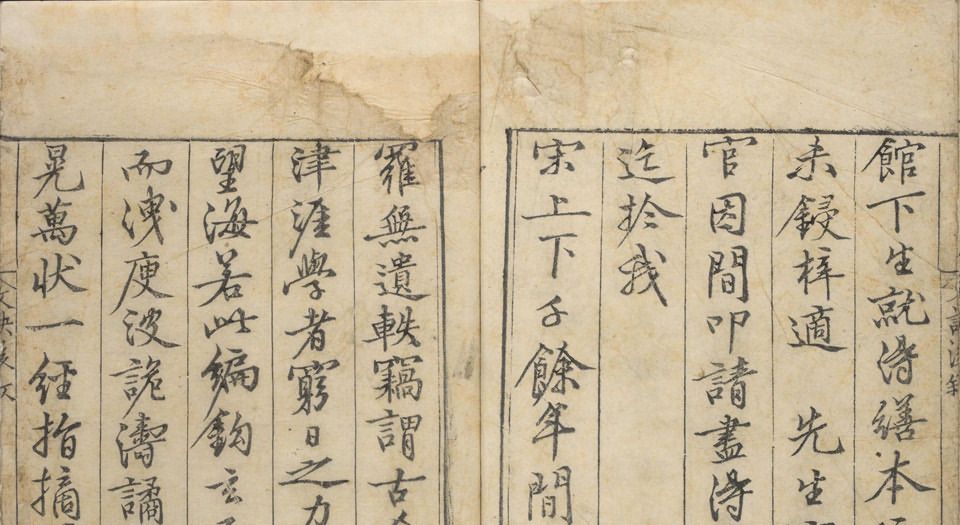 館下生就得繕本
未鋟梓適 先生
官因間叩請盡得
迄於我
宋上下千餘年間
羅無遺軼竊謂古
津涯學者窮日之力
望海若此編鈎玄
而洩廋波詭濤譎
晃萬狀一經指摘